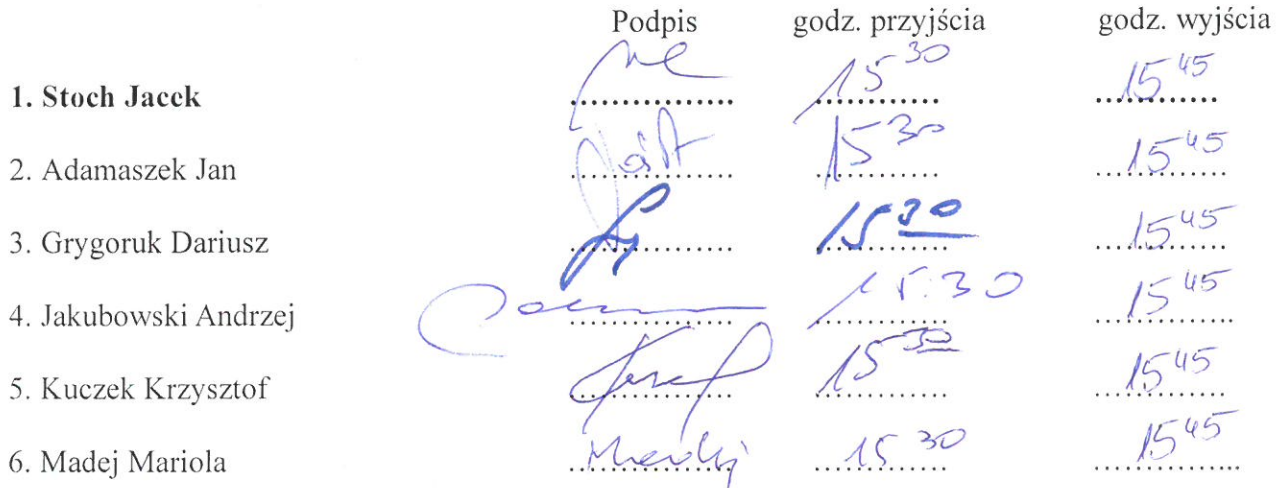 Podpis godz. przyjścia godz. wyjścia
1. Stoch Jacek 15 30 15 45
2. Adamaszek Jan 15 30 15 45
3. Grygoruk Dariusz 15 30 15 45
4. Jakubowski Andrzej 15:30 15 45
5. Kuczek Krzysztof 15 30 15 45
6. Madej Mariola 15 30 15 45